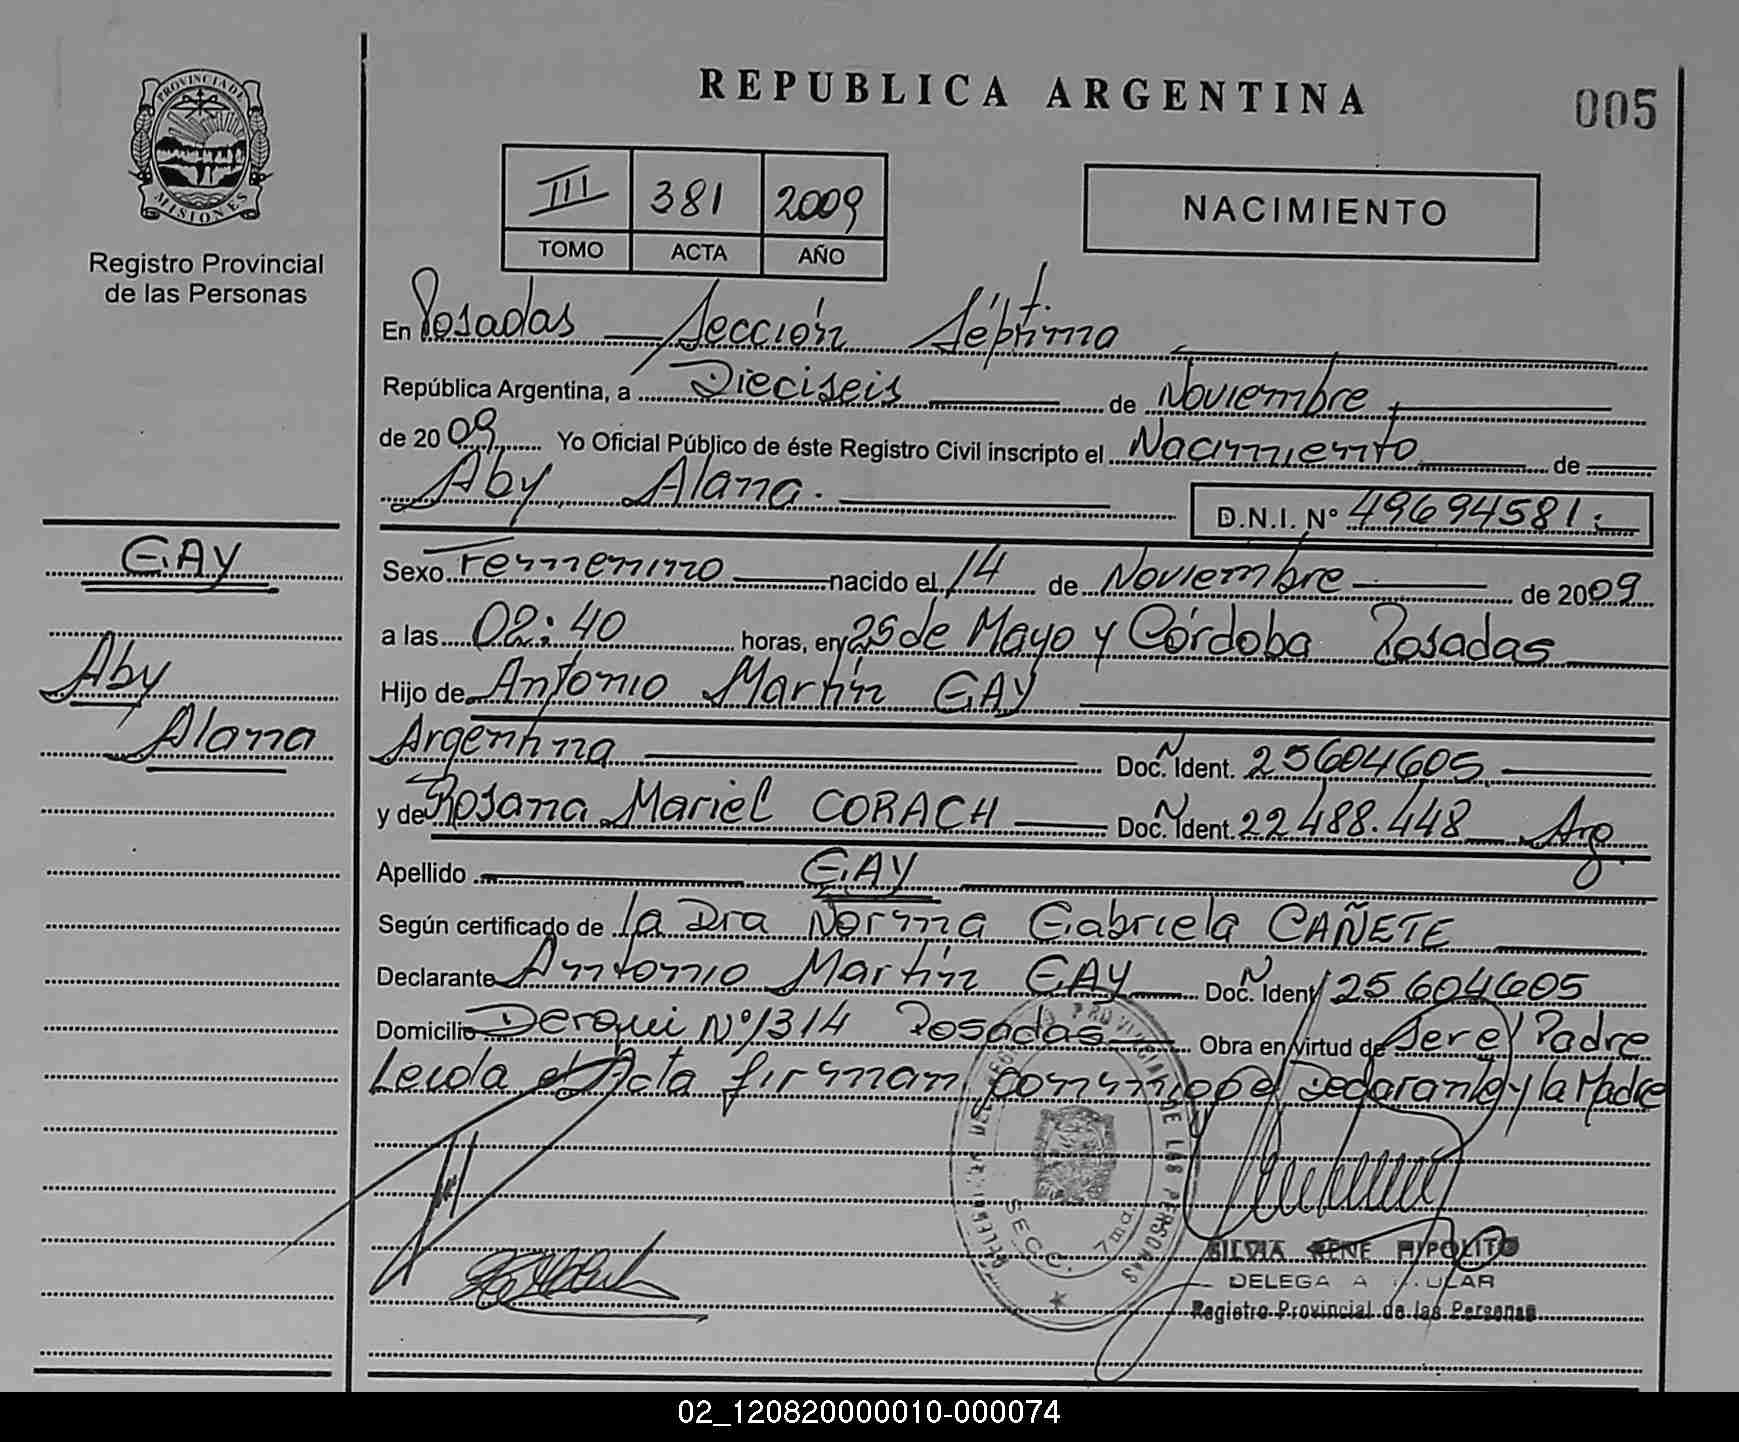 PROVINCIA DE
MISIONES
Registro Provincial
de las Personas
REPUBLICA ARGENTINA
005
III 381 2009
TOMO ACTA AÑO
NACIMIENTO
En Posadas Sección Séptima
República Argentina, a Dieciseis de Noviembre
de 2009 Yo Oficial Público de éste Registro Civil inscripto el Nacimiento de
Aby Alana. D.N.I. N° 49694581.
GAY
Aby
Alana
Sexo Femenino nacido el 14 de Noviembre de 2009
a las 02:40 horas, en 25 de Mayo y Córdoba Posadas
Hijo de Antonio Martín GAY
Argentina Doc. Ident. 25604605
y de Rosana Mariel CORACH Doc. Ident. 22488.448 Arg.
Apellido GAY
Según certificado de la Dra Norma Gabriela CAÑETE
Declarante Antonio Martín GAY Doc. Ident. 25604605
Domicilio Derqui N° 1314 Posadas Obra en virtud de Ser el Padre
Leida el Acta firman conmigo el Declarante y la Madre
PROVINCIAL DE LAS PERSONAS
SECC. 7ma.
SILVIA RENE HIPOLITO
Registro Provincial de las Personas
02_120820000010-000074